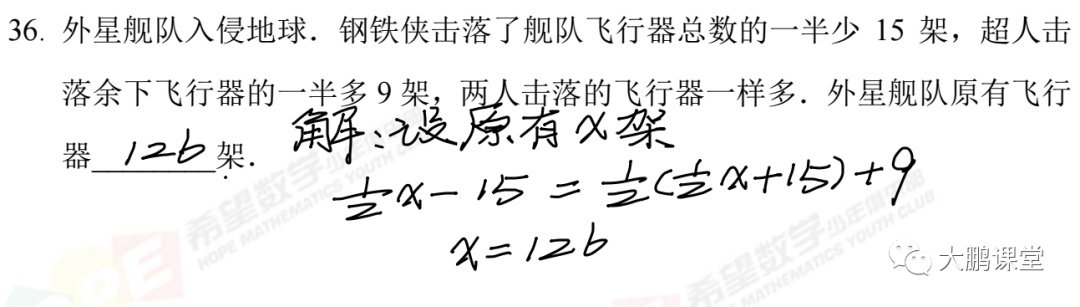 36. 外星舰队入侵地球．钢铁侠击落了舰队飞行器总数的一半少 15 架，超人击
落余下飞行器的一半多 9 架，两人击落的飞行器一样多．外星舰队原有飞行
器 126 架．
解：设原有x架
1/2x-15=1/2(1/2x+15)+9
x=126
希望数学少年俱乐部
HOPE MATHEMATICS YOUTH CLUB
希望数学少年俱乐部
HOPE MATHEMATICS YOUTH CLUB
大鹏课堂